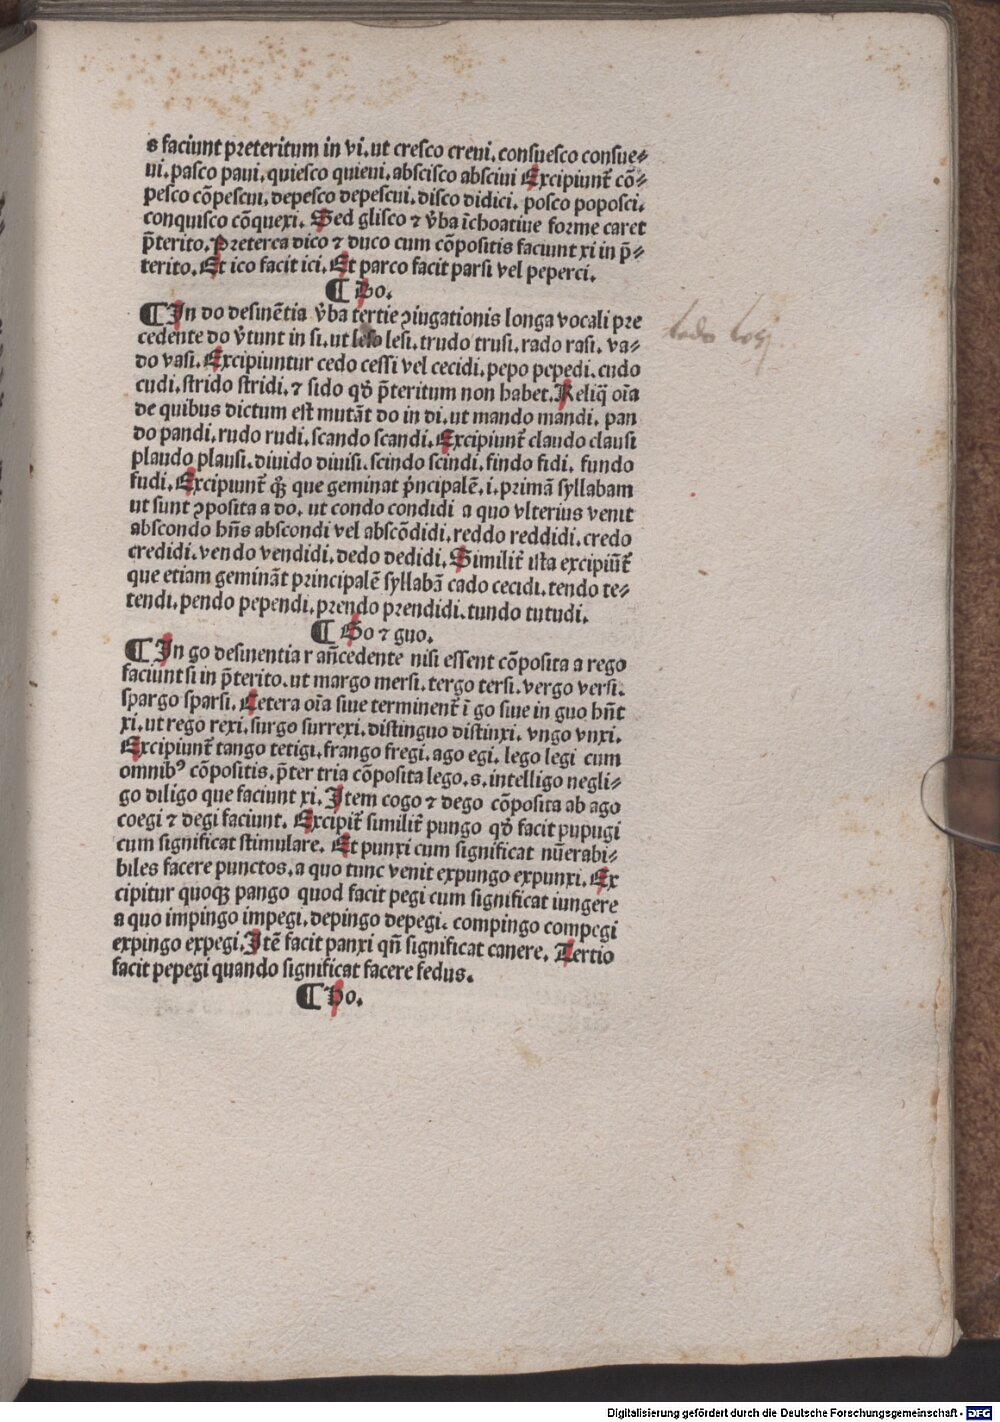 s faciunt preteritum in vi. ut cresco creui. consuesco consue⸗
ui. pasco paui. quiesco quieui. abscisco absciui Excipiunt᷑ cō⸗
pesco cōpescui. depesco depescui. disco didici. posco poposci.
conquisco cōquexi. Sed glisco ⁊ v̓ba īchoatiue forme caret
p̄terito. Preterea dico ⁊ duco cum cōpositis faciunt xi in p̄⸗
terito. Et ico facit ici. Et parco facit parsi vel peperci.
¶ Do.
¶ In do desinētia v̓ba tertie ꝯiugationis longa vocali pre
cedente do v̓tunt in si. ut leso lesi. trudo trusi. rado rasi. va⸗
do vasi. Excipiuntur cedo cessi vel cecidi. pepo pepedi. cudo
cudi. strido stridi. ⁊ sido qd̓ p̄teritum non habet. Reliq̄ oīa
de quibus dictum est mutāt do in di. ut mando mandi. pan
do pandi. rudo rudi. scando scandi. Excipiunt᷑ claudo clausi
plaudo plausi. diuido diuisi. scindo scindi. findo fidi. fundo
fudi. Excipiunt᷑ qꝫ que geminat p̓ncipalē. i. primā syllabam
ut sunt ꝯposita a do. ut condo condidi a quo vlterius venit
abscondo hn̄s abscondi vel abscōdidi. reddo reddidi. credo
credidi. vendo vendidi. dedo dedidi. Similit᷑ ista excipiūt᷑
que etiam gemināt principalē syllabā cado cecidi. tendo te⸗
tendi. pendo pependi. prendo prendidi. tundo tutudi.
¶ Go ⁊ guo.
¶ In go desinentia r an̄cedente nisi essent cōposita a rego
faciunt si in p̄terito. ut margo mersi. tergo tersi. vergo versi.
spargo sparsi. Cetera oīa siue terminent᷑ ī go siue in guo hn̄t
xi. ut rego rexi. surgo surrexi. distinguo distinxi. vngo vnxi.
Excipiunt᷑ tango tetigi. frango fregi. ago egi. lego legi cum
omnibꝰ cōpositis. p̄ter tria cōposita lego. s. intelligo negli⸗
go diligo que faciunt xi. Item cogo ⁊ dego cōposita ab ago
coegi ⁊ degi faciunt. Excipit᷑ similit᷑ pungo qd̓ facit pupugi
cum significat stimulare. Et punxi cum significat nūerabi⸗
biles facere punctos. a quo tunc venit expungo expunxi. Ex
cipitur quoqꝫ pango quod facit pegi cum significat iungere
a quo impingo impegi. depingo depegi. compingo compegi
expingo expegi. Itē facit panxi qn̄ significat canere. Tertio
facit pepegi quando significat facere fedus.
¶ Ho.
Digitalisierung gefördert durch die Deutsche Forschungsgemeinschaft - DFG